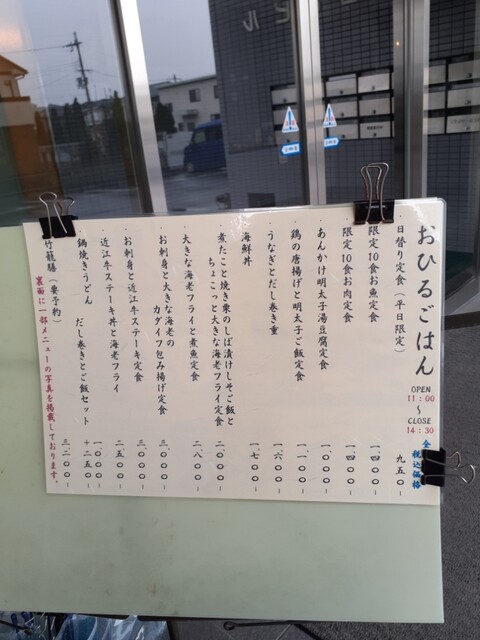 おひるごはん
OPEN
11:00
～
CLOSE
14:30
全て税込価格
・日替り定食（平日限定） 九五〇-
・限定10食お魚定食 一、四〇〇-
・限定10食お肉定食 一、四〇〇-
・あんかけ明太子湯豆腐定食 一、〇〇〇-
・鶏の唐揚げと明太子ご飯定食 一、一〇〇-
・うなぎとだし巻き重 一、六〇〇-
・海鮮丼 一、七〇〇-
・煮たこと焼き栗のしば漬けしそご飯と
ちょこっと大きな海老フライ定食 二、〇〇〇-
・大きな海老フライと煮魚定食 二、八〇〇-
・お刺身と大きな海老の
カダイフ包み揚げ定食 三、〇〇〇-
・お刺身と近江牛ステーキ定食 三、〇〇〇-
・近江牛ステーキ丼と海老フライ 二、五〇〇-
・鍋焼きうどん 一、〇〇〇-
だし巻きとご飯セット ＋二五〇-
・竹籠膳（要予約） 三、二〇〇-
裏面に一部メニューの写真を掲載しております。